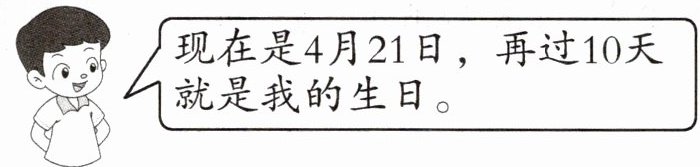 现在是4月21日，再过10天
就是我的生日。